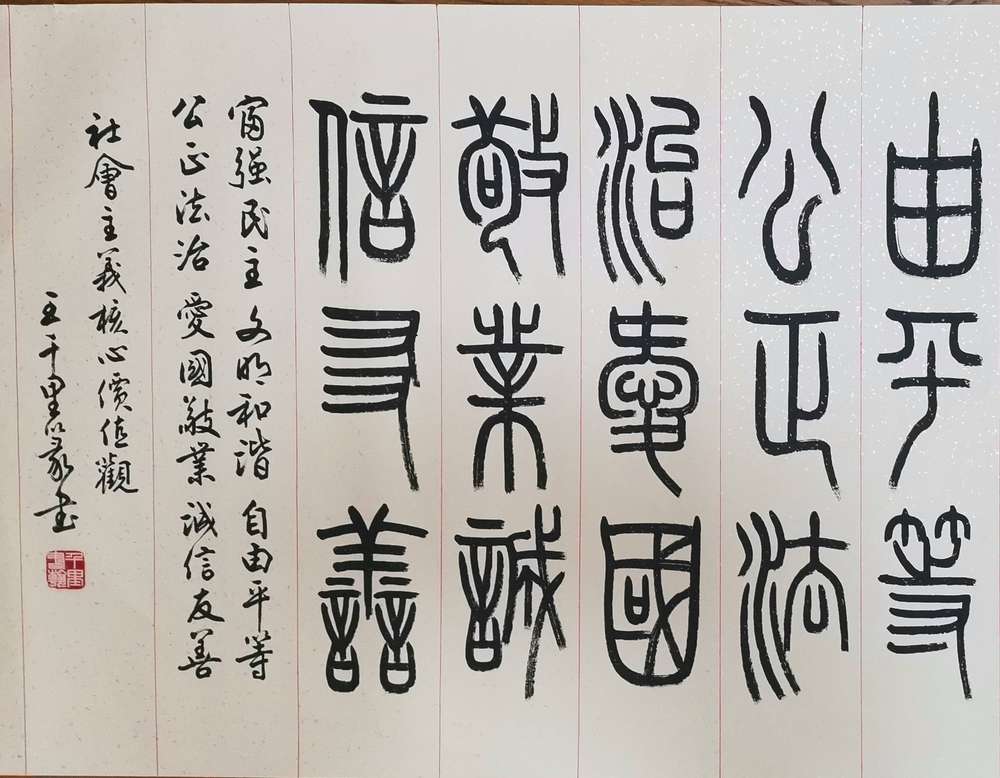 由平等
公正法
治愛國
敬業誠
信友善
富强民主文明和谐自由平等
公正法治愛國敬業诚信友善
社會主義核心價值觀
王千里篆书